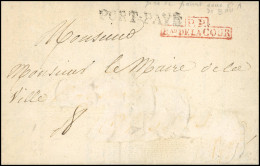 PORT-PAYÉ
P.P.
P.au DE LA COUR
Monsieur
Monsieur le Maire de la
Ville